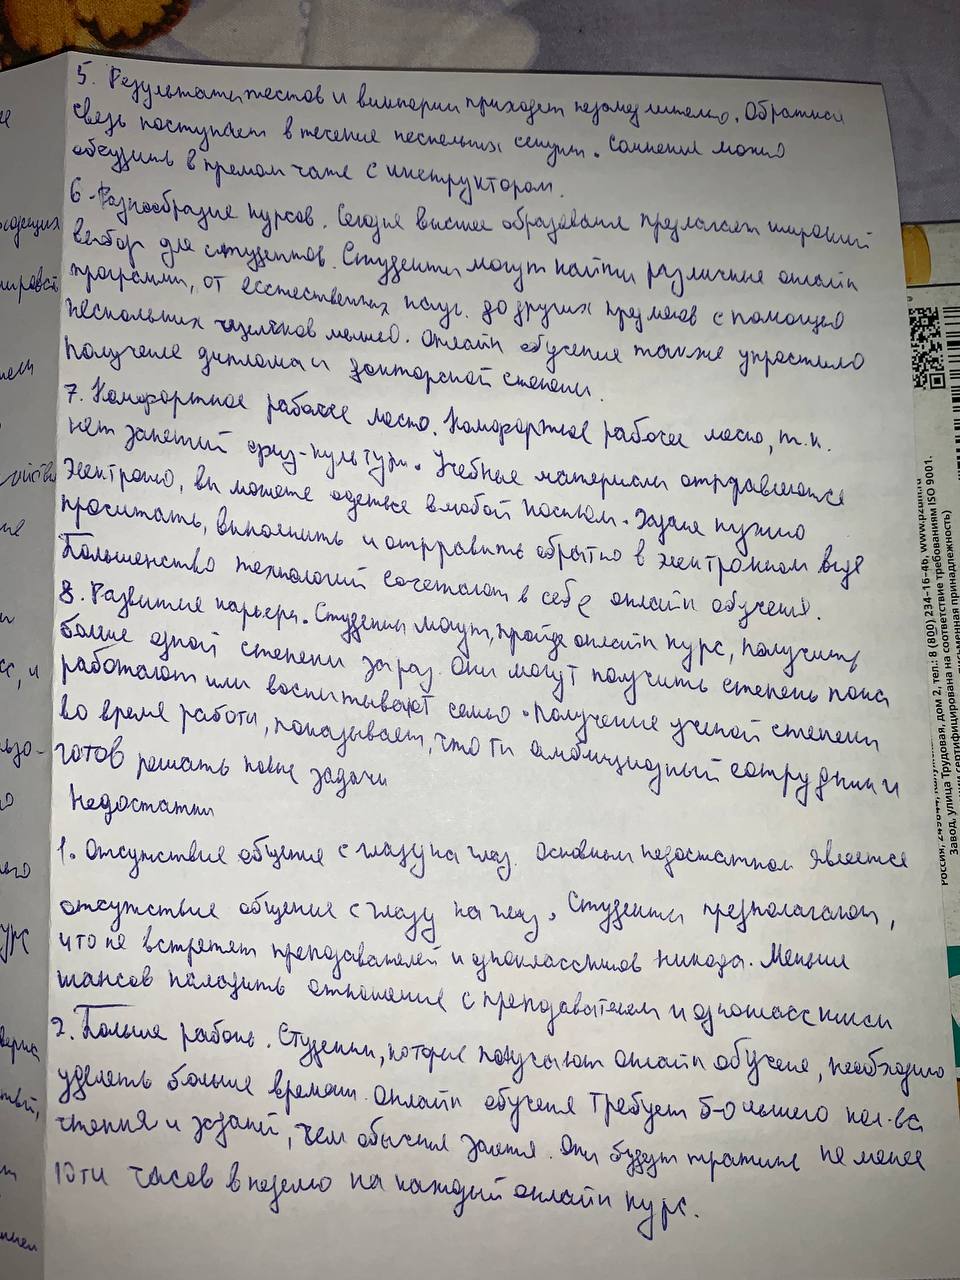 5. Результаты тестов и викторин приходят незамедлительно. Обратная
связь поступает в течение нескольких секунд. Сомнения можно
обсудить в прямом чате с инструктором.
6. Разнообразие курсов. Сегодня высшее образование предлагает широкий
выбор для студентов. Студенты могут найти различные онлайн
программы, от естественных наук до других предметов с помощью
нескольких щелчков мышью. Онлайн обучение также упростило
получение диплома и докторской степени.
7. Комфортное рабочее место. Комфортное рабочее место, т.к.
нет занятий физ-культуры. Учебные материалы отправляются
электронно, вы можете одеться в любой костюм. Задание нужно
прочитать, выполнить и отправить обратно в электронном виде
Большинство технологий сочетают в себе онлайн обучения.
8. Развитие карьеры. Студенты могут, пройдя онлайн курс, получить
больше одной степени за раз. Они могут получить степень пока
работают или воспитывают семью. Получение ученой степени
во время работы, показывает, что ты амбициозный сотрудник и
готов решать новые задачи
Недостатки
1. Отсутствие общения с глазу на глаз. Основным недостатком является
отсутствие общения с глазу на глаз. Студенты предполагают,
что не встретят преподавателей и одноклассников никогда. Меньше
шансов наладить отношение с преподавателем и одноклассниками
2. Больше работы. Студенты, которые получают онлайн обучения, необходимо
уделять больше времени. Онлайн обучения требует б-ольшего кол-ва
чтения и заданий, чем обычные занятия. Они будут тратить не менее
10ти часов в неделю на каждый онлайн курс.
Завод, улица Трудовая, дом 2, тел.: 8 (800) 234-16-46, www.pzbm.ru
сертифицирована на соответствие требованиям ISO 9001.
письменная принадлежность)